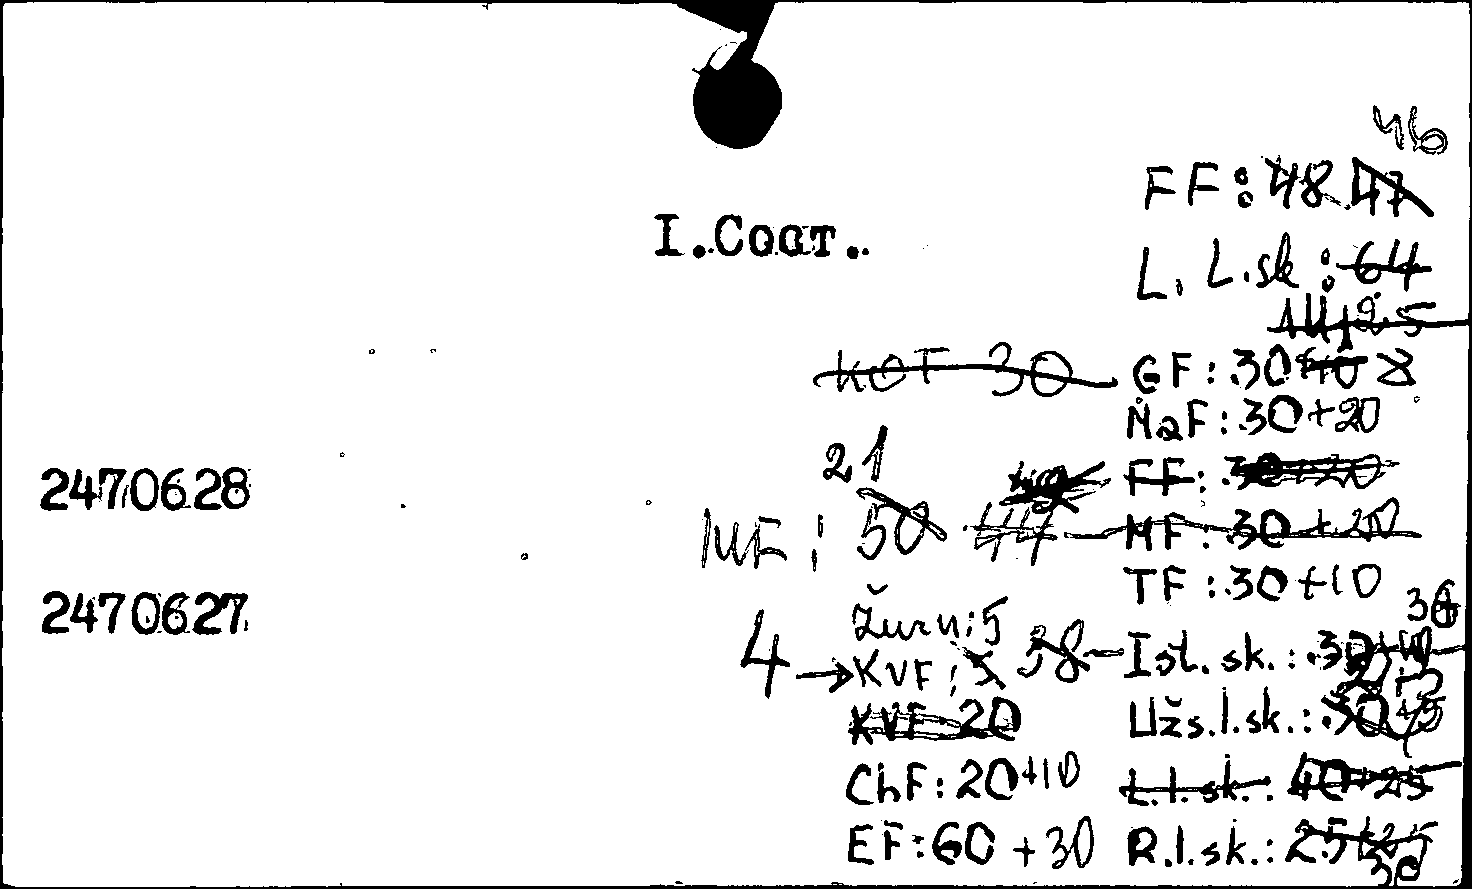 46
FF: 48 47
I. Сост.
L. L.sk: 64
KOT 30 GF: 30 8
MaF: 30+20
21
FF: 30+20
2470628
MF: 50 44 MF: 30+20
TF: 30+10
2470627
Žurn: 5
4 → KVF: 5 38 Ist. sk.: 30
KVF 20 Užs.l.sk.: 30
ChF: 20+10 L.l.sk.: 40+25
EF: 60+30 R.l.sk.: 25+25
30